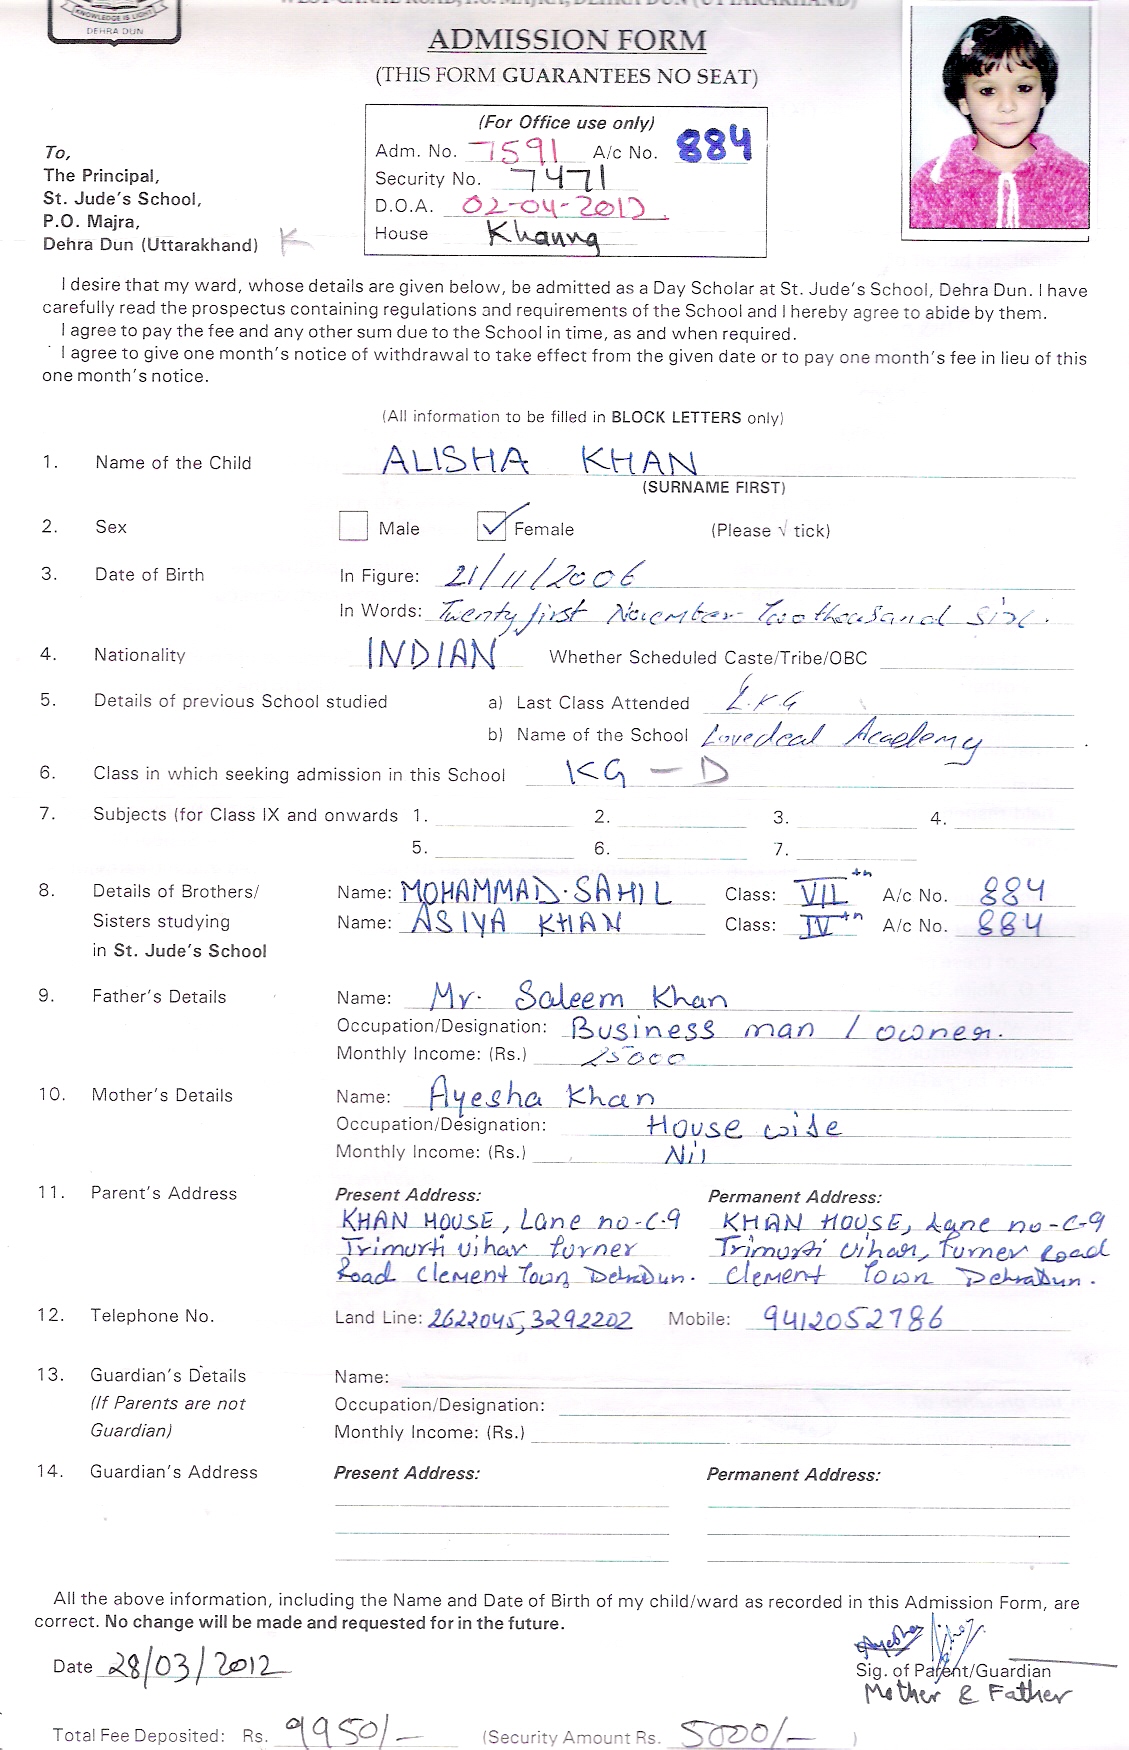 KNOWLEDGE IS LIGHT
DEHRA DUN
ADMISSION FORM
(THIS FORM GUARANTEES NO SEAT)
(For Office use only)
Adm. No. 7591 A/c No. 884
Security No. 7471
D.O.A. 02-04-2012
House Khanna
To,
The Principal,
St. Jude's School,
P.O. Majra,
Dehra Dun (Uttarakhand) K
I desire that my ward, whose details are given below, be admitted as a Day Scholar at St. Jude's School, Dehra Dun. I have
carefully read the prospectus containing regulations and requirements of the School and I hereby agree to abide by them.
I agree to pay the fee and any other sum due to the School in time, as and when required.
I agree to give one month's notice of withdrawal to take effect from the given date or to pay one month's fee in lieu of this
one month's notice.
(All information to be filled in BLOCK LETTERS only)
1. Name of the Child ALISHA KHAN
(SURNAME FIRST)
2. Sex Male Female (Please √ tick)
3. Date of Birth In Figure: 21/11/2006
In Words: Twenty first November Two thousand Six.
4. Nationality INDIAN Whether Scheduled Caste/Tribe/OBC
5. Details of previous School studied a) Last Class Attended L.K.G
b) Name of the School Lovedeal Academy
6. Class in which seeking admission in this School KG - D
7. Subjects (for Class IX and onwards 1. 2. 3. 4.
5. 6. 7.
8. Details of Brothers/ Name: MOHAMMAD. SAHIL Class: VII th A/c No. 884
Sisters studying Name: ASIYA KHAN Class: IV th A/c No. 884
in St. Jude's School
9. Father's Details Name: Mr. Saleem Khan
Occupation/Designation: Business man / owner.
Monthly Income: (Rs.) 25000
10. Mother's Details Name: Ayesha Khan
Occupation/Designation: House wife
Monthly Income: (Rs.) Nil
11. Parent's Address Present Address: Permanent Address:
KHAN HOUSE, Lane no-C-9 KHAN HOUSE, Lane no-C-9
Trimurti vihar turner Trimurti vihar, Turner Road
Road Clement Town DehraDun. Clement Town DehraDun.
12. Telephone No. Land Line: 2622045, 3292202 Mobile: 9412052786
13. Guardian's Details Name:
(If Parents are not Occupation/Designation:
Guardian) Monthly Income: (Rs.)
14. Guardian's Address Present Address: Permanent Address:
All the above information, including the Name and Date of Birth of my child/ward as recorded in this Admission Form, are
correct. No change will be made and requested for in the future.
Ayesha
Date 28/03/2012 Sig. of Parent/Guardian
Mother & Father
Total Fee Deposited: Rs. 9950/- (Security Amount Rs. 5000/- )